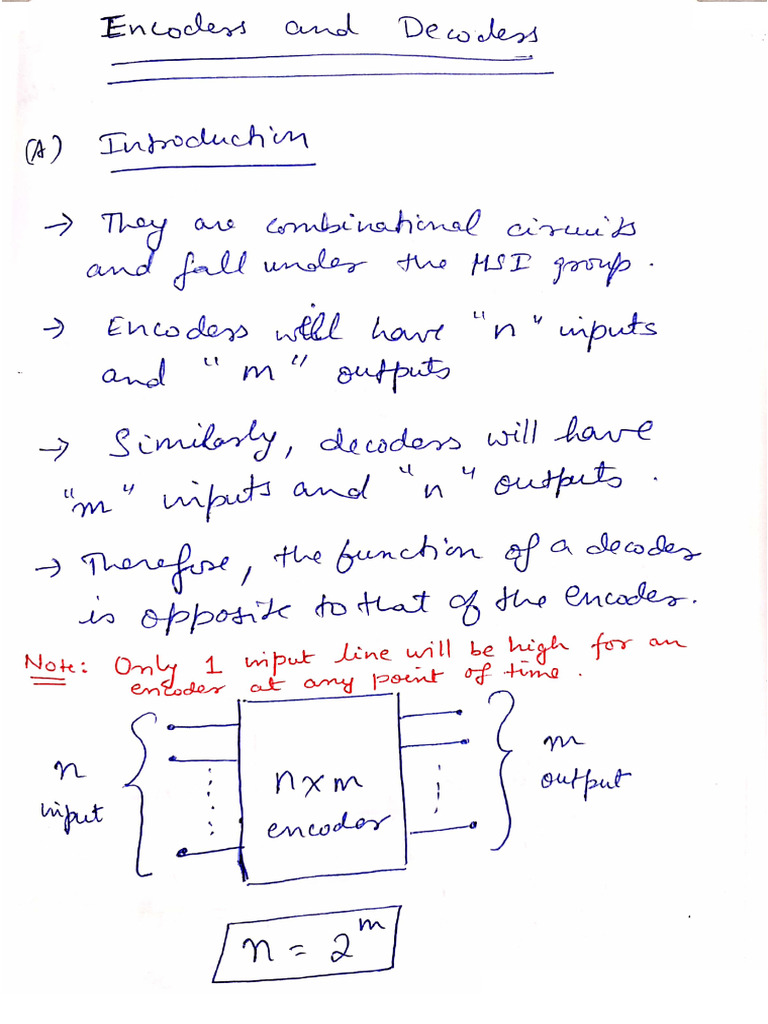 Encoders and Decoders
(A) Introduction
→ They are combinational circuits
and fall under the MSI group.
→ Encoders will have "n" inputs
and "m" outputs
→ Similarly, decoders will have
"m" inputs and "n" outputs.
→ Therefore, the function of a decoder
is opposite to that of the encoder.
Note: Only 1 input line will be high for an
encoder at any point of time.
n
input
n x m
encoder
m
output
n = 2^m